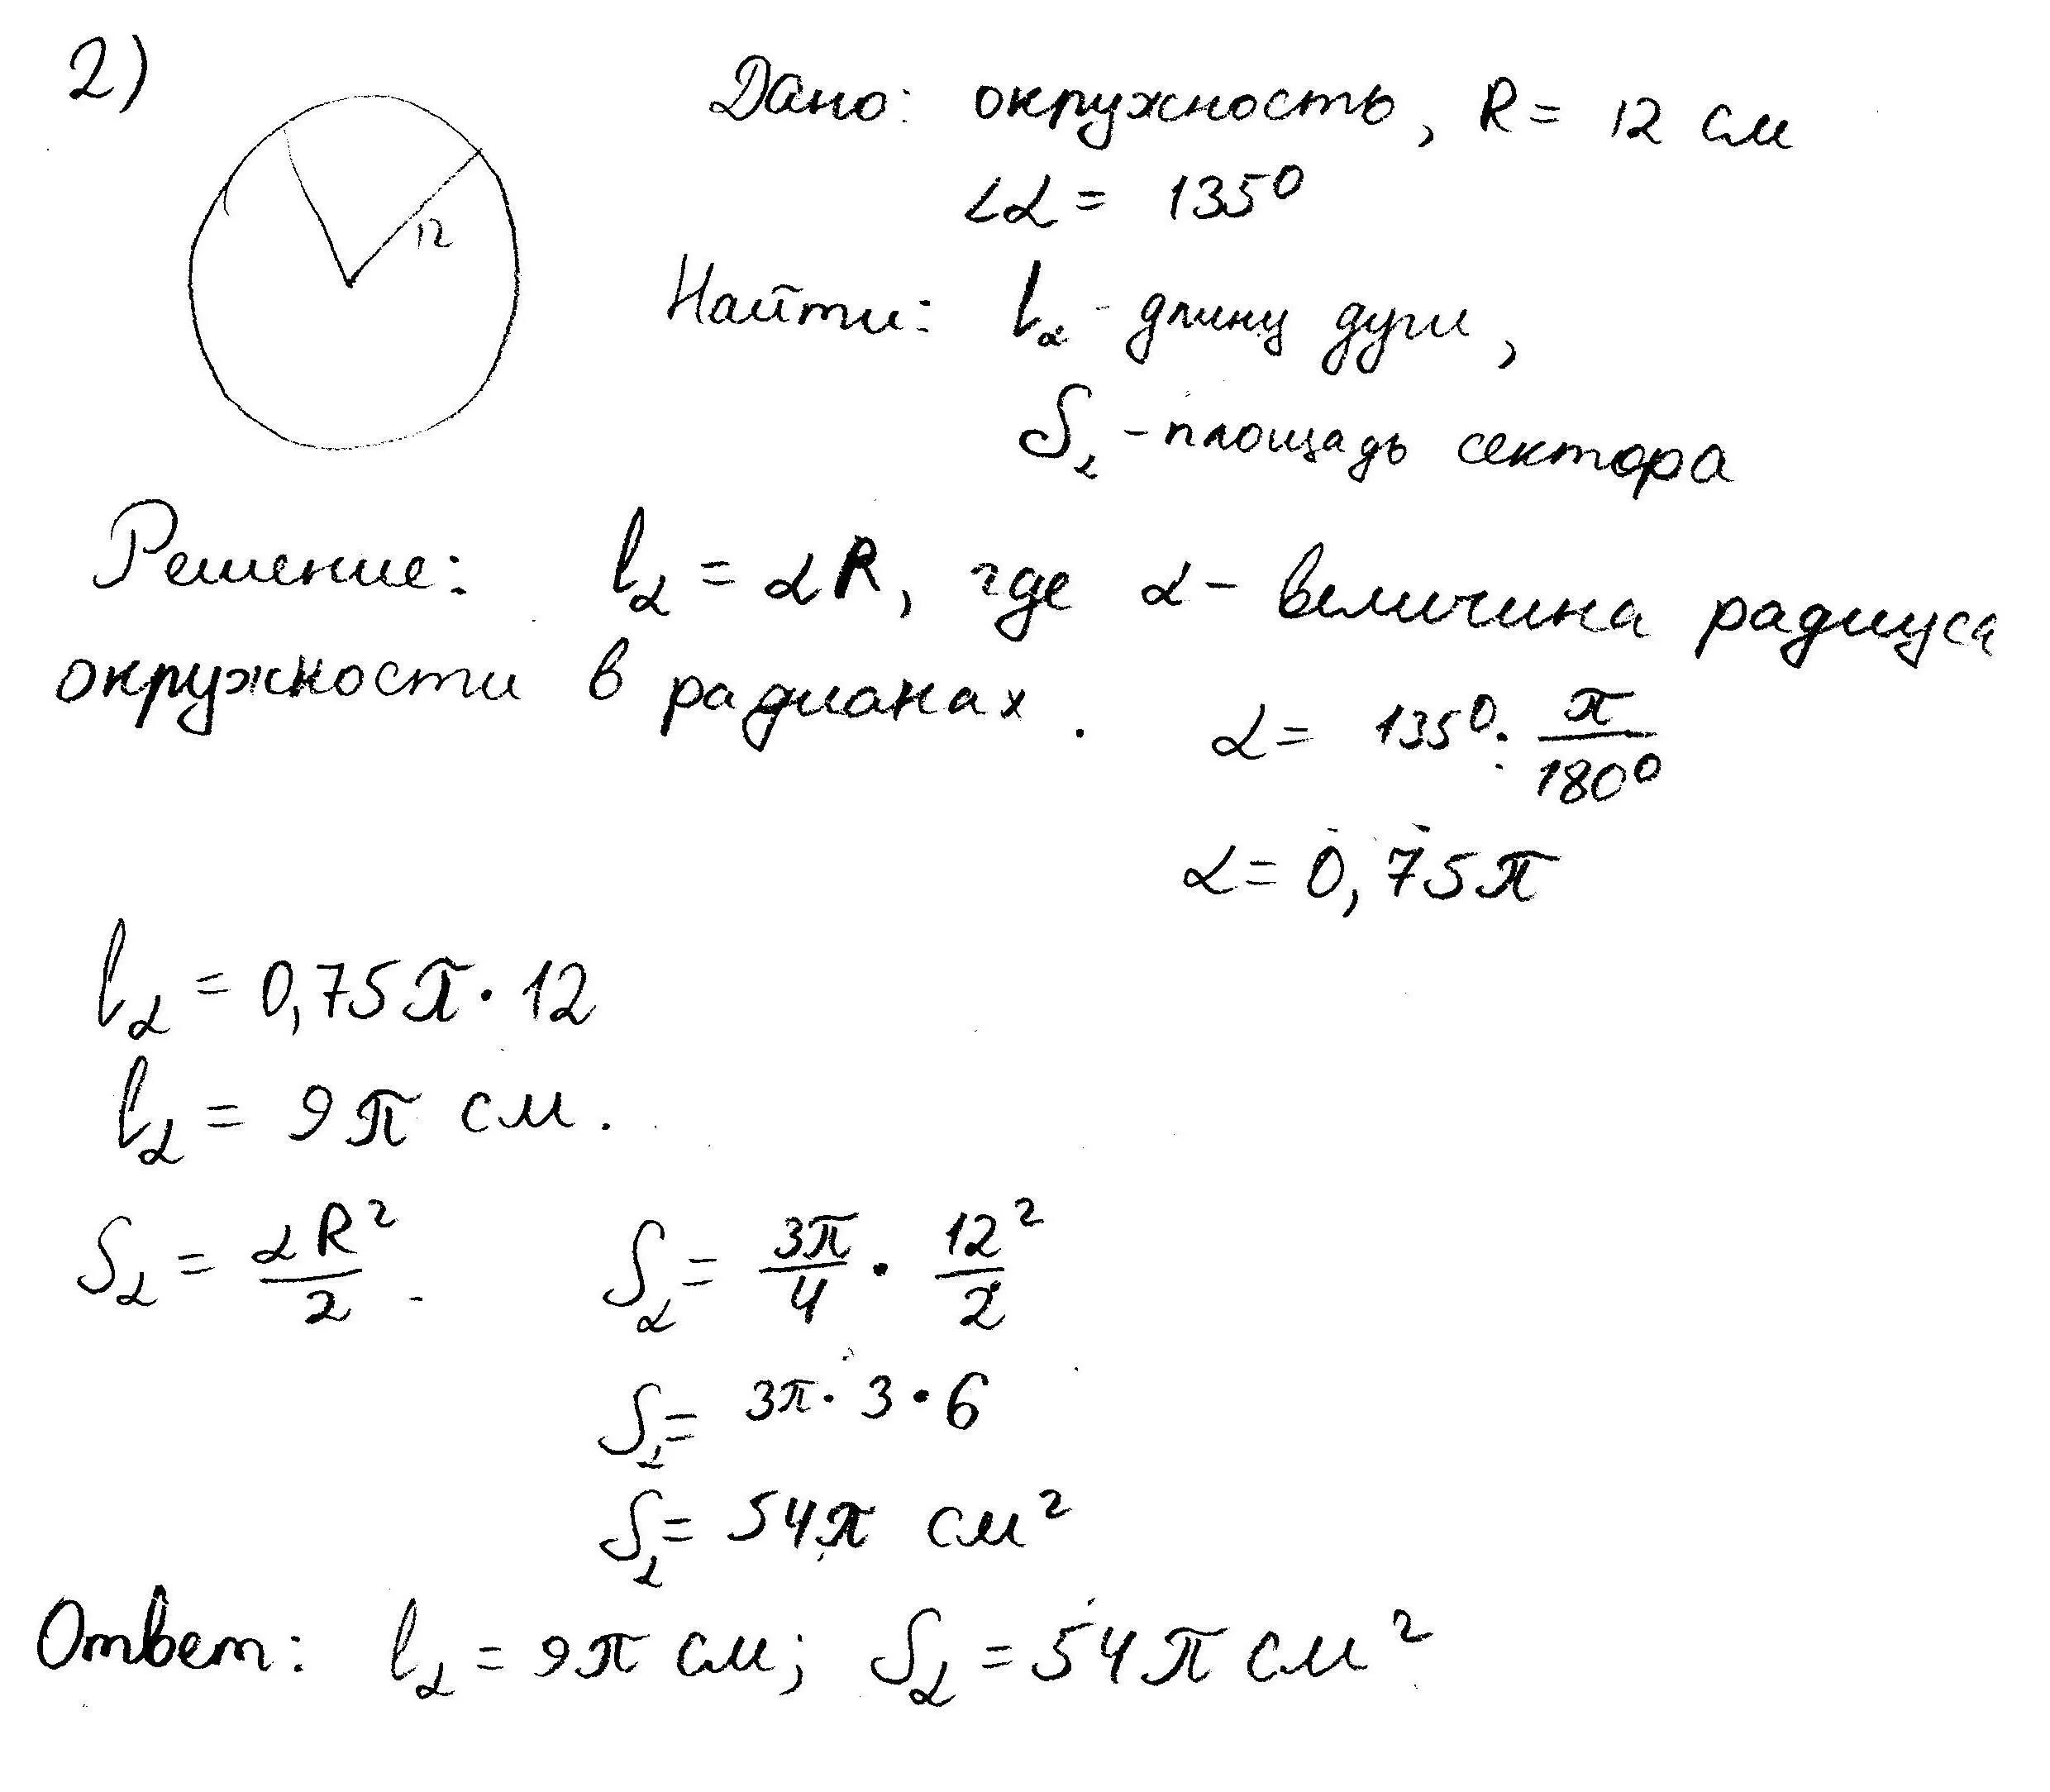 2)
Дано: окружность, R = 12 см
∠α = 135°
12
Найти: lα - длину дуги,
Sα - площадь сектора
Решение: lα = αR, где α - величина радиуса
окружности в радианах. α = 135° · π/180°
α = 0,75π
lα = 0,75π · 12
lα = 9π см.
Sα = αR²/2. Sα = 3π/4 · 12²/2
Sα = 3π · 3 · 6
Sα = 54π см²
Ответ: lα = 9π см; Sα = 54π см²